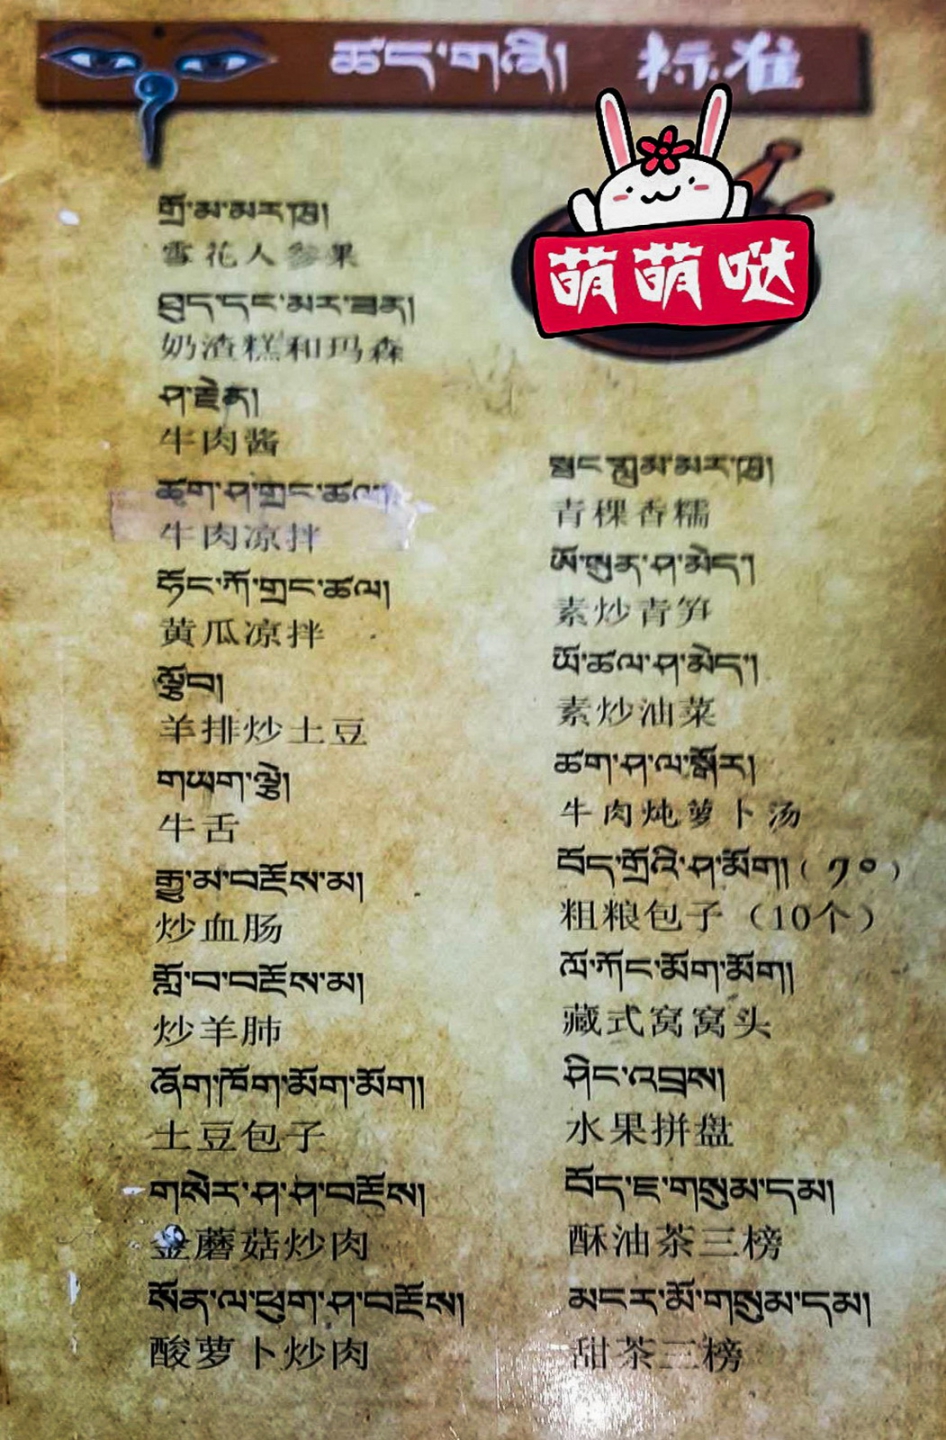 ཚད་གཞི། 标准
萌萌哒
གྲོ་མ་མར་ཁུ།
雪花人参果
ཐུད་དང་མར་ཟན།
奶渣糕和玛森
ཤ་རྗེན།
牛肉酱
ཚག་ཤ་གྲང་ཚལ།
牛肉凉拌
ཧོང་ཀོ་གྲང་ཚལ།
黄瓜凉拌
羊排炒土豆
གཡག་ལྕེ།
牛舌
རྒྱུ་མ་བརྔོས་མ།
炒血肠
གློ་བ་བརྔོས་མ།
炒羊肺
ཞོག་ཁོག་མོག་མོག།
土豆包子
གསེར་ཤ་ཤ་བརྔོས།
金蘑菇炒肉
སོན་ལ་ཕུག་ཤ་བརྔོས།
酸萝卜炒肉
མར་ཁུ།
青稞香糯
ཨོ་སུན་ཤ་མེད།
素炒青笋
ཡོ་ཚལ་ཤ་མེད།
素炒油菜
ཚག་ཤ་ལ་
牛肉炖萝卜汤
བོད་གྲོའི་ཤ་མོག། (༡༠)
粗粮包子（10个）
ལོ་ཀོང་མོག་མོག།
藏式窝窝头
ཤིང་འབྲས།
水果拼盘
བོད་ཇ་གསུམ་དམ།
酥油茶三榜
མངར་མོ་གསུམ་དམ།
甜茶三榜